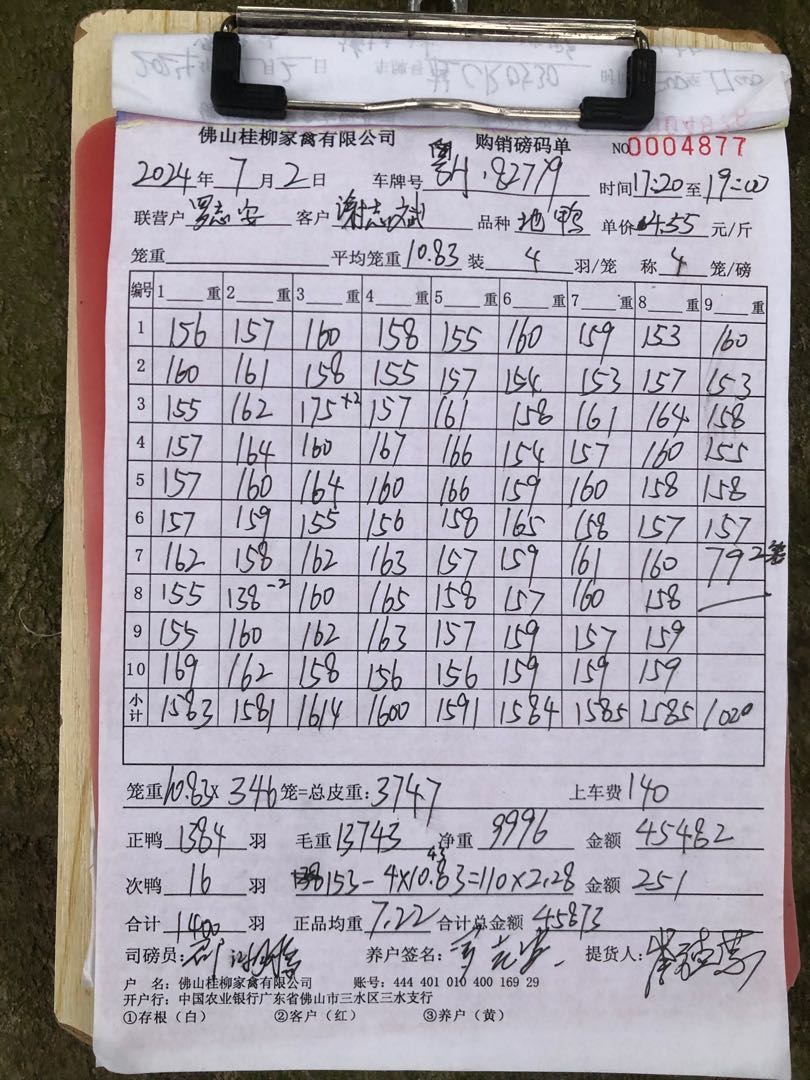 佛山桂柳家禽有限公司 购销磅码单 NO 0004877
2024年7月2日 车牌号 .82779 时间17:20至19:00
联营户 罗志安 客户 谢志斌 品种 地鸭 单价 4.55 元/斤
笼重 平均笼重 10.83 装 4 羽/笼 称 4 笼/磅
编号 1 重 2 重 3 重 4 重 5 重 6 重 7 重 8 重 9 重
1 156 157 160 158 155 160 159 153 160
2 160 161 158 155 157 154 153 157 153
3 155 162 175+2 157 161 158 161 164 158
4 157 164 160 167 166 154 157 160 155
5 157 160 164 160 166 159 160 158 158
6 157 159 155 156 158 165 158 157 157
7 162 158 162 163 157 159 161 160 79 2笼
8 155 138-2 160 165 158 157 160 158
9 155 160 162 163 157 159 157 159
10 169 162 158 156 156 159 159 159
小计 1583 1581 1614 1600 1591 1584 1585 1585 1020
笼重 10.83 × 346 笼=总皮重: 3747 上车费 140
正鸭 1384 羽 毛重 13743 净重 9996 金额 45482
次鸭 16 羽 153-4×10.83=110×2.28 金额 251
合计 1400 羽 正品均重 7.22 合计总金额 45873
司磅员: 养户签名: 提货人:
户 名: 佛山桂柳家禽有限公司 账号: 444 401 010 400 169 29
开户行: 中国农业银行广东省佛山市三水区三水支行
①存根(白) ②客户(红) ③养户(黄)